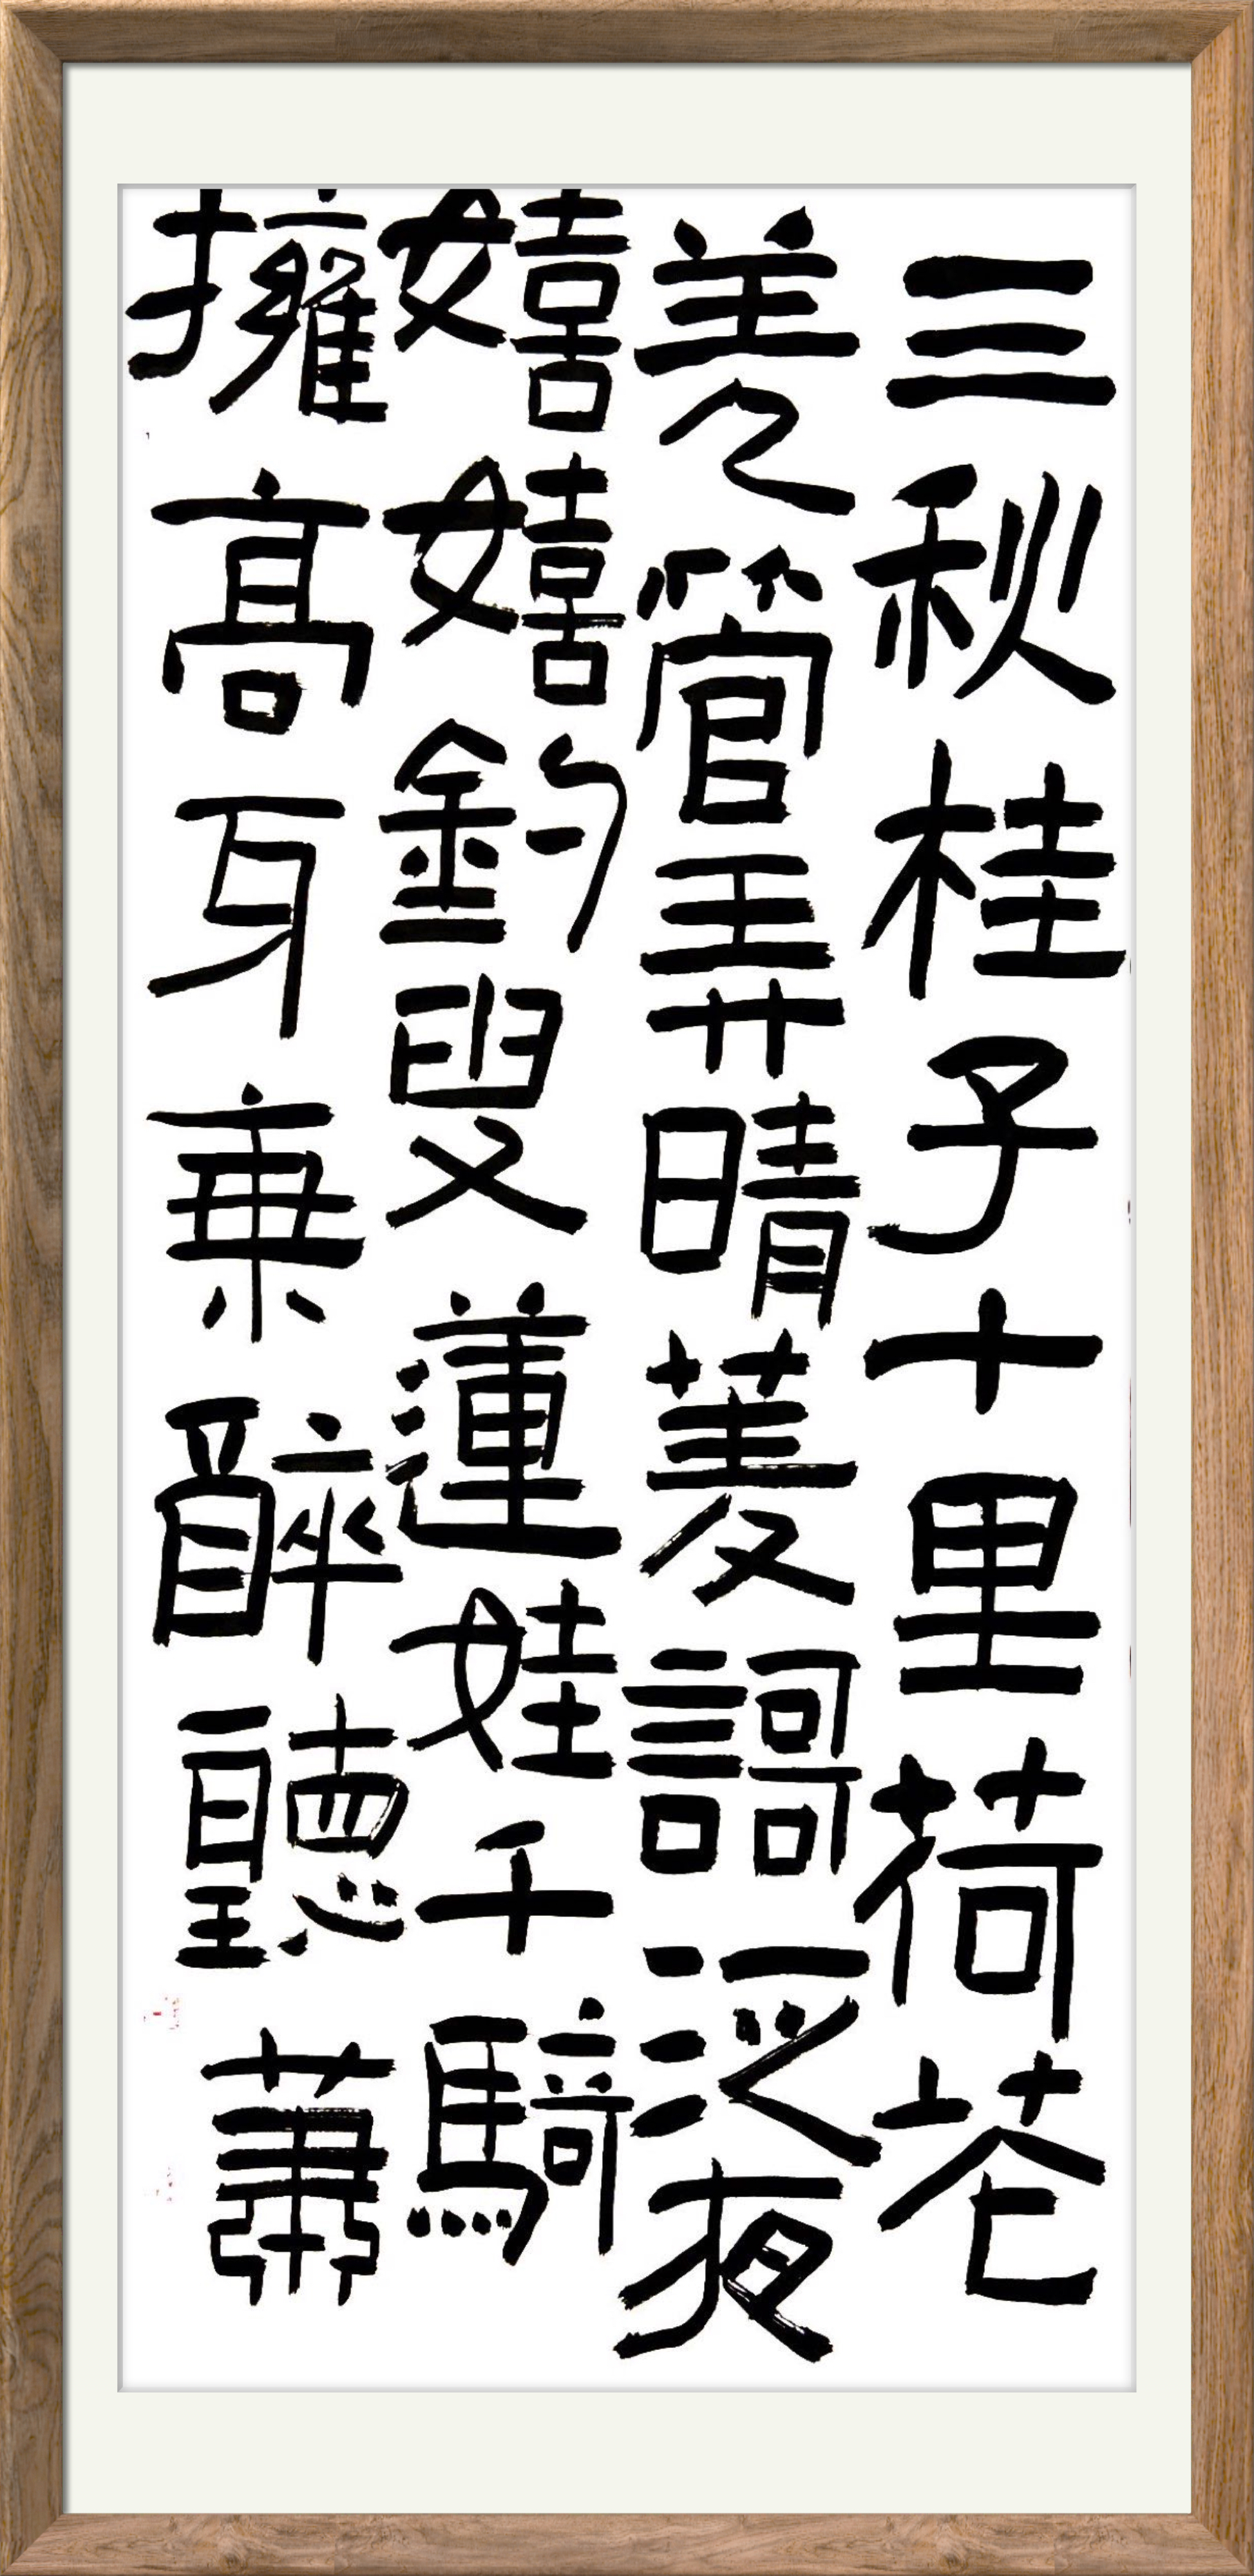 三秋桂子十里荷花
羌管弄晴菱謌泛夜
嬉嬉釣叟蓮娃千騎
擁高牙乘醉聽蕭